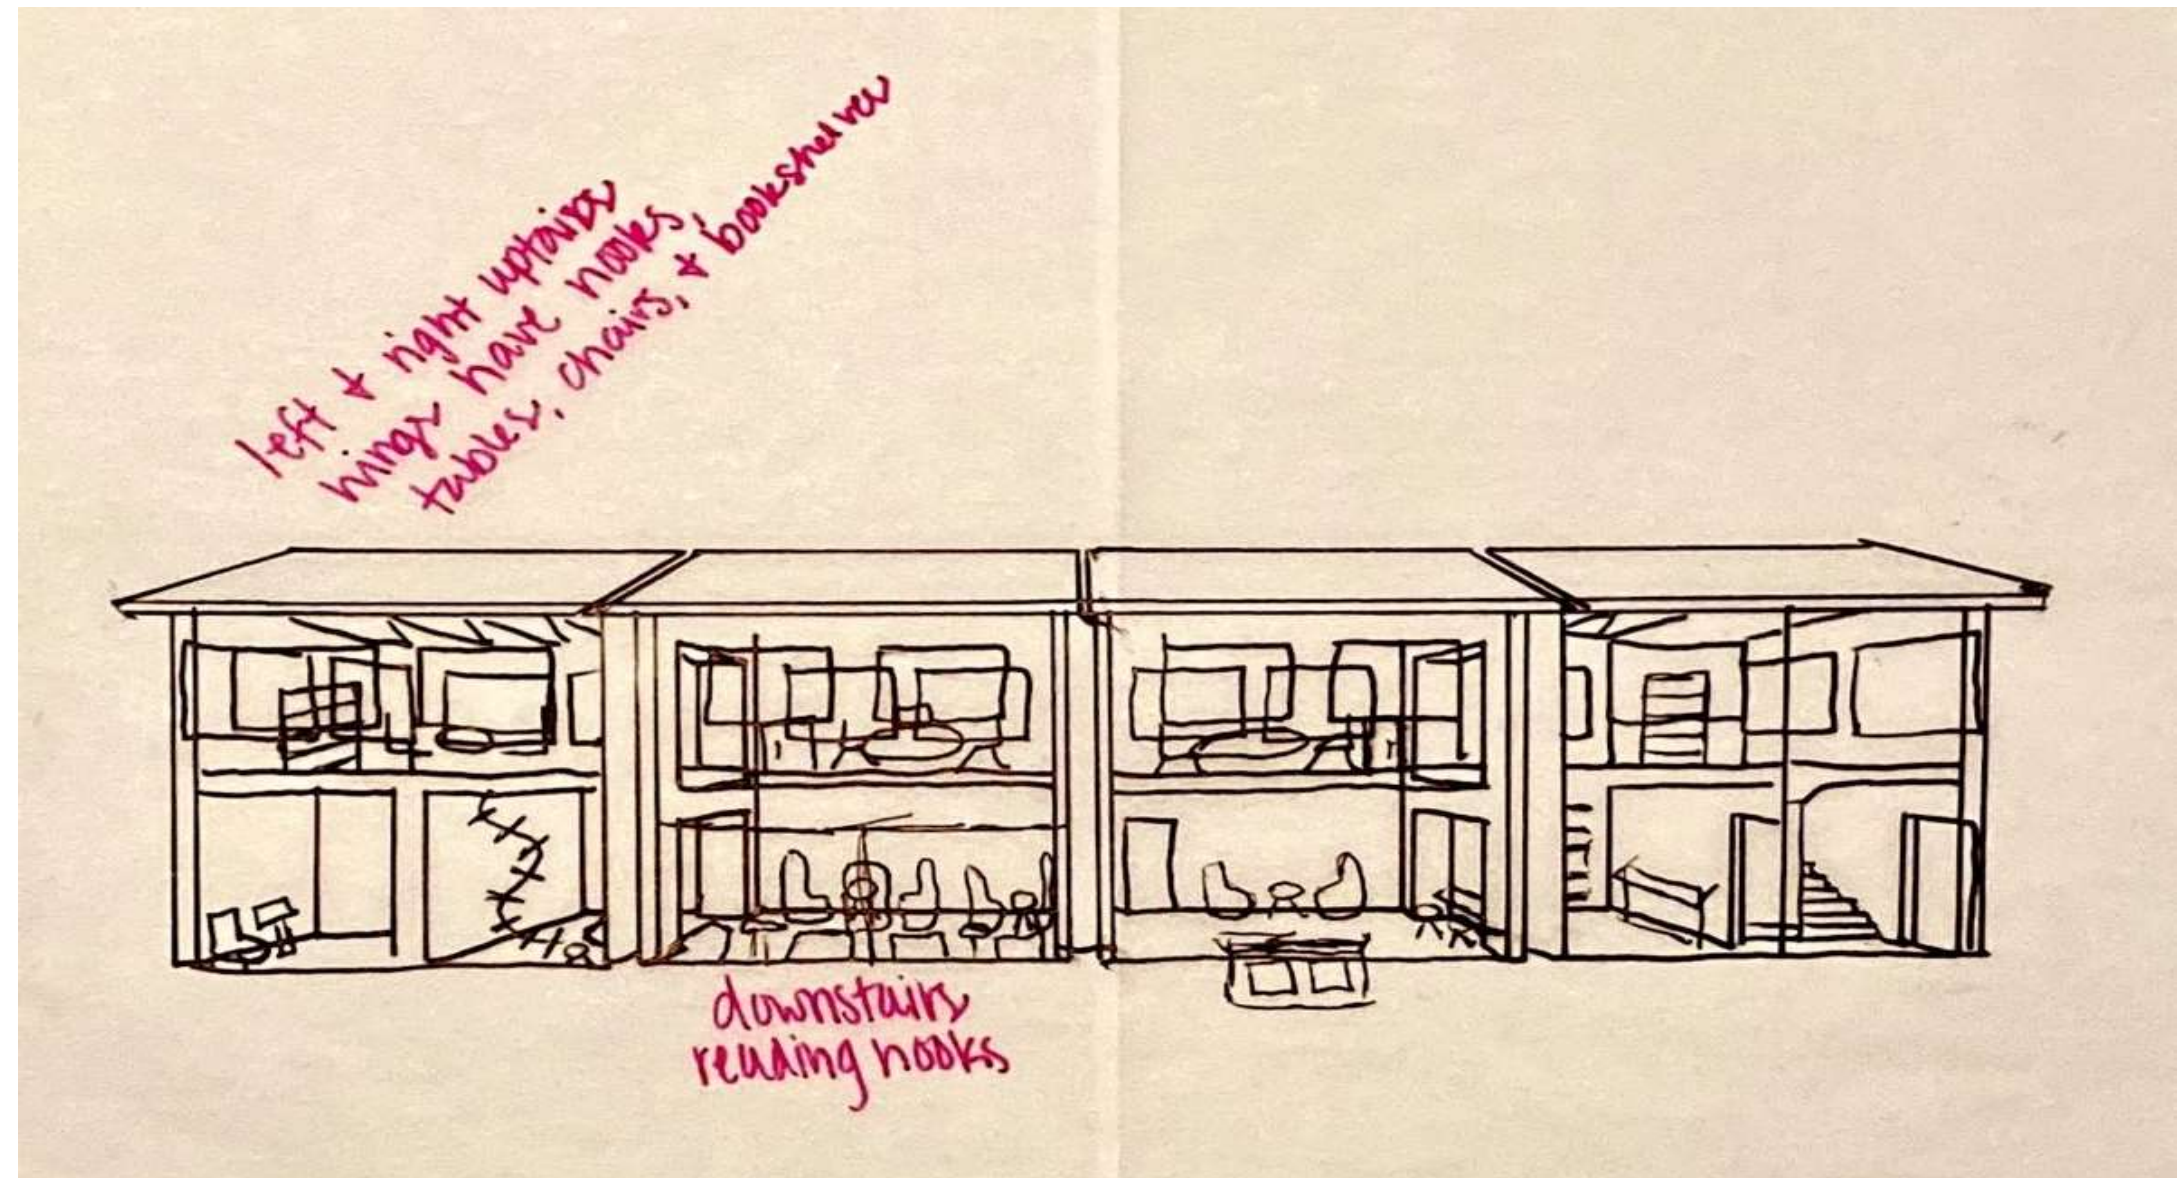 left & right uptairs
wings have nooks,
tables, chairs, & bookshelves
downstairs
reading nooks